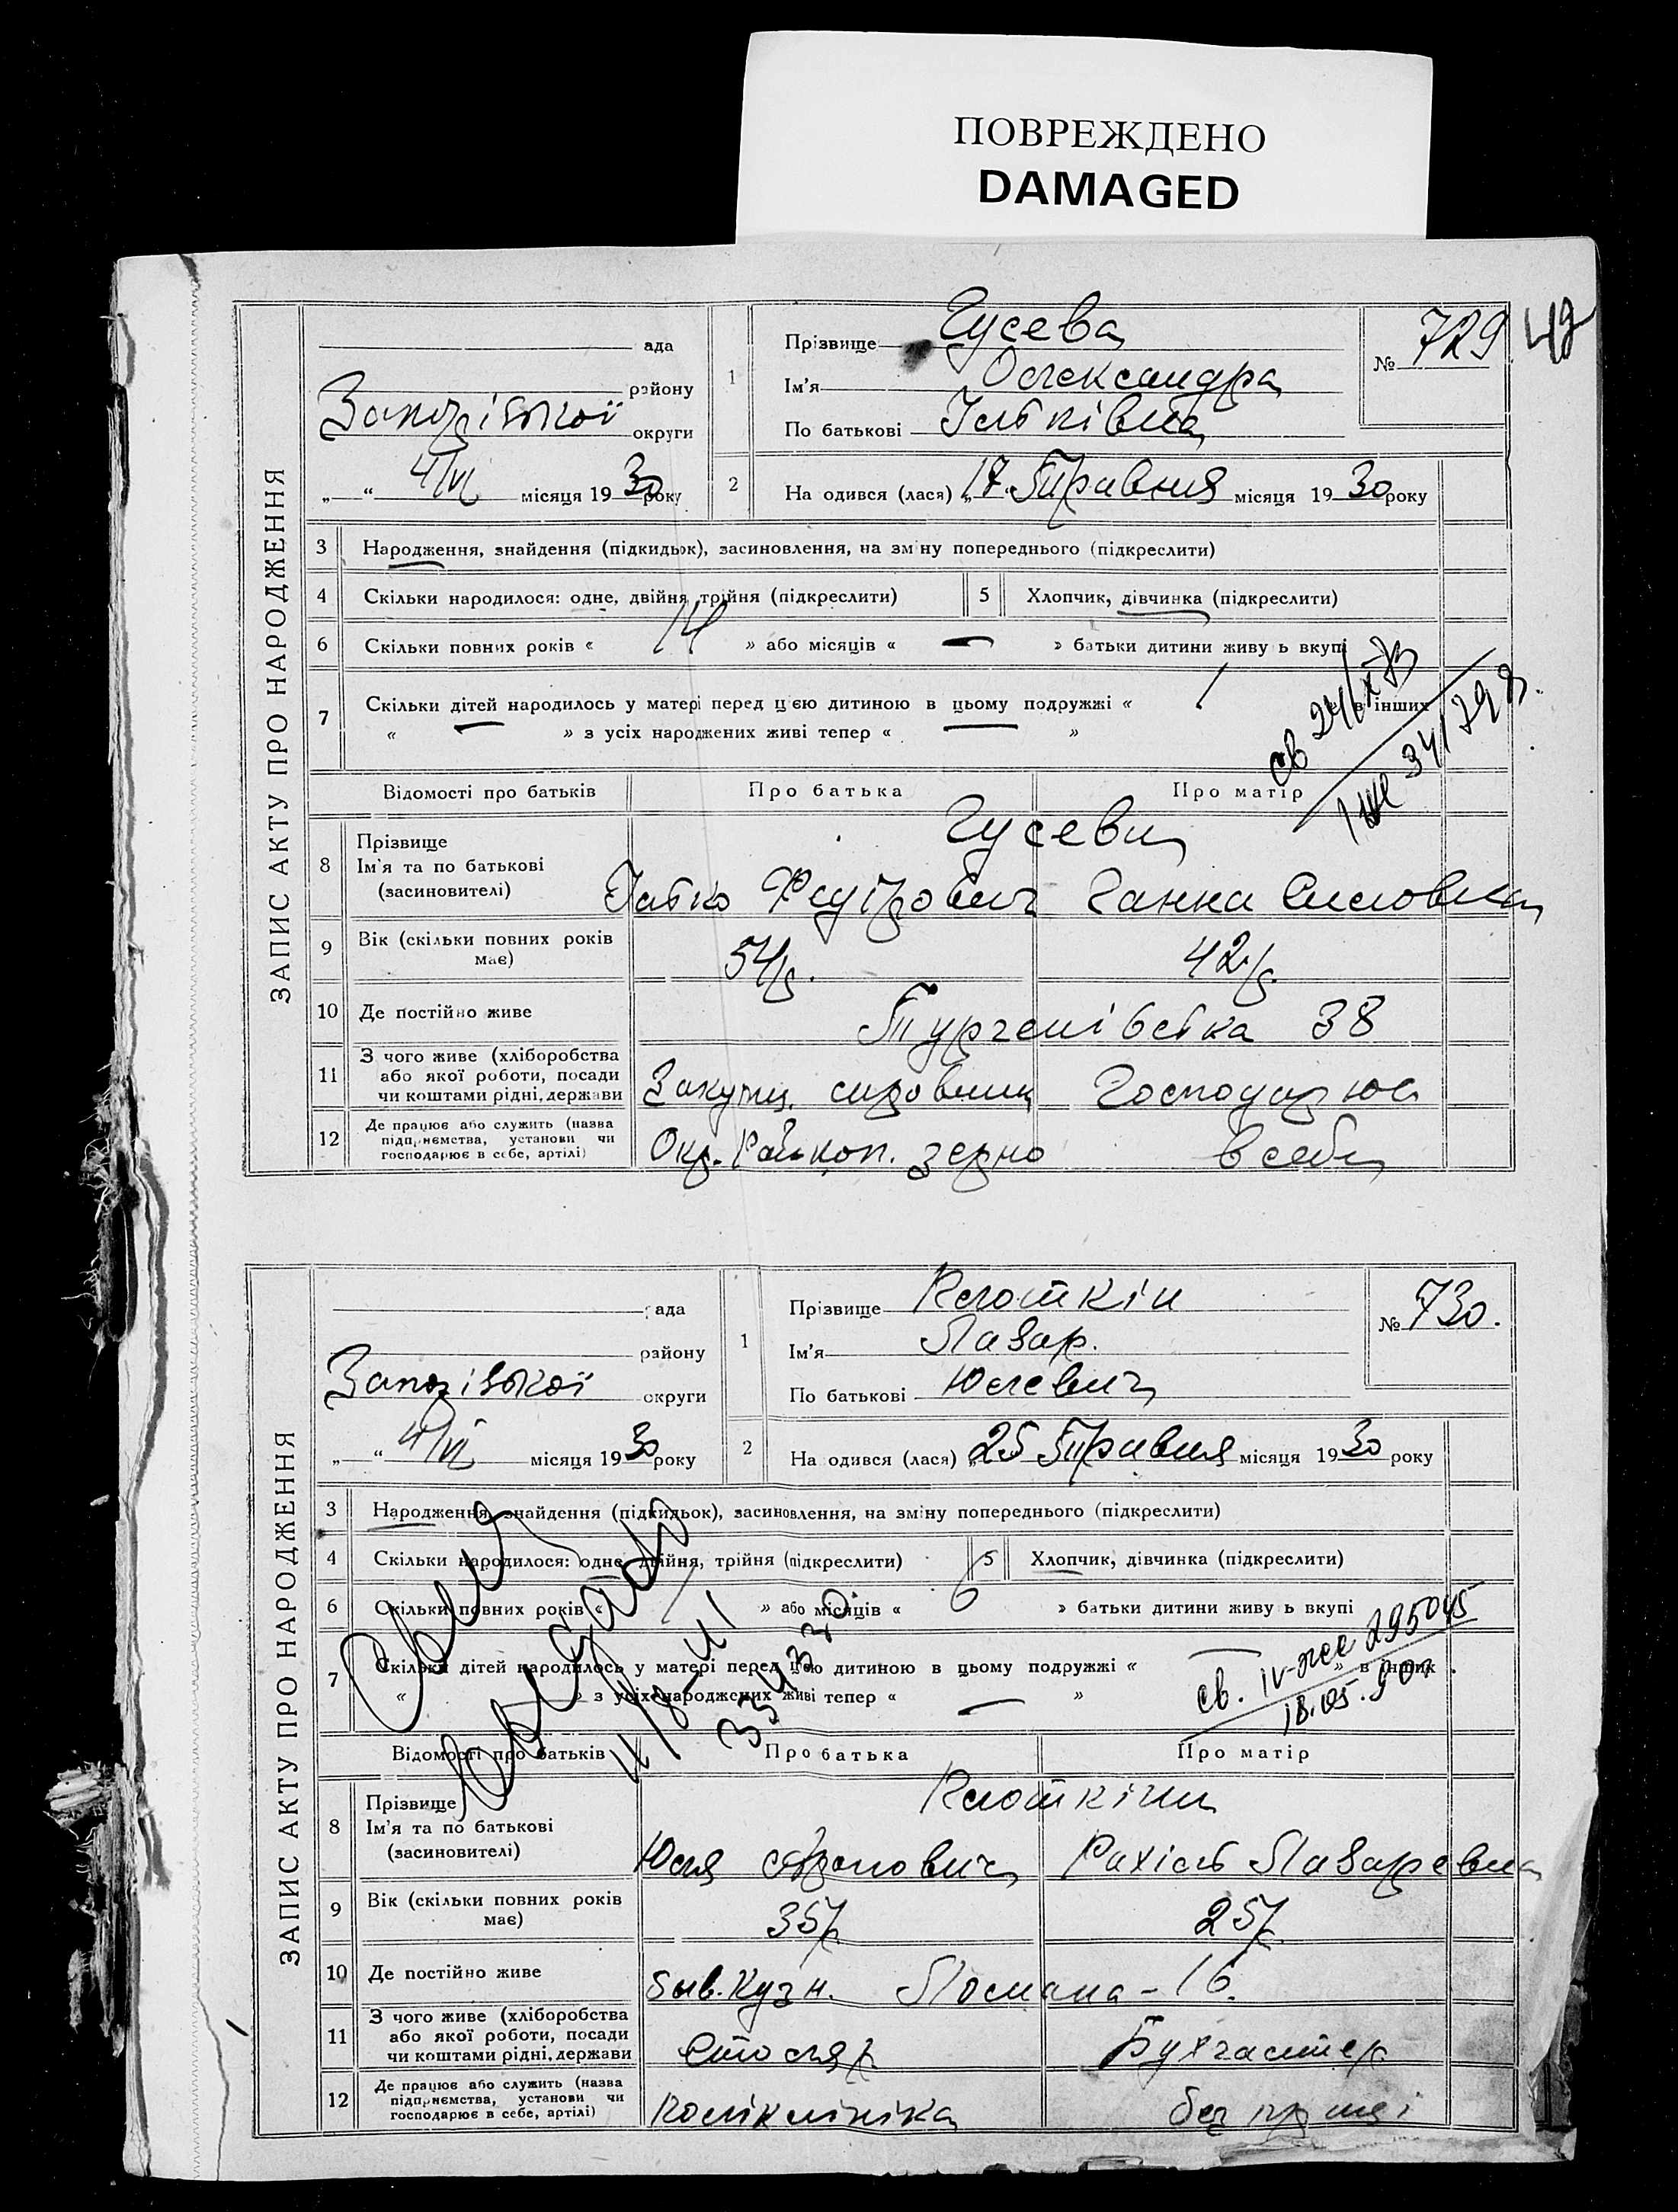 ПОВРЕЖДЕНО
DAMAGED
42
ЗАПИС АКТУ ПРО НАРОДЖЕННЯ
ада
району
Запорізької округи
„ “ 4/VI місяця 1930 року
1
Прізвище Гусева
Ім'я Олександра
По батькові Ільківна
№ 729
2 На одився (лася) „17 Травня місяця 1930 року
3 Народження, знайдення (підкидьок), засиновлення, на зміну попереднього (підкреслити)
4 Скільки народилося: одне, двійня трійня (підкреслити)
5 Хлопчик, дівчинка (підкреслити)
6 Скільки повних років « 14 » або місяців « — » батьки дитини живу ь вкупі
7 Скільки дітей народилось у матері перед цією дитиною в цьому подружжі « 1 в інших
« — » з усіх народжених живі тепер « — »
св 24/X-73
Відомості про батьків Про батька Про матір
8 Прізвище
Ім'я та по батькові
(засиновителі)
Гусеви
Ілько Федорович Ганна
9 Вік (скільки повних років
має)
54р. 42р.
10 Де постійно живе Тургенівська 38
11 З чого живе (хліборобства
або якої роботи, посади
чи коштами рідні, держави
Закупщ. сировини
12 Де працює або служить (назва
підприємства, установи чи
господарює в себе, артілі)
Окр. Райкоп. зерно в себе
ЗАПИС АКТУ ПРО НАРОДЖЕННЯ
ада
району
Запорізької округи
„ “ 4/VI місяця 1930 року
1
Прізвище Клоткін
Ім'я Лазар.
По батькові Юлевич
№ 730.
2 На одився (лася) „25 Травня місяця 1930 року
3 Народження, знайдення (підкидьок), засиновлення, на зміну попереднього (підкреслити)
4 Скільки народилося: одне, двійня, трійня (підкреслити)
5 Хлопчик, дівчинка (підкреслити)
6 Скільки повних років « 1 » або місяців « 6 » батьки дитини живу ь вкупі
7 Скільки дітей народилось у матері перед цією дитиною в цьому подружжі « — » в інших
« » з усіх народжених живі тепер « — »
св. IV-жс 295045
18.05.90г
Відомості про батьків Про батька Про матір
8 Прізвище
Ім'я та по батькові
(засиновителі)
Клоткіни
Юля Рахіль Лазаревна
9 Вік (скільки повних років
має)
35р. 25р.
10 Де постійно живе 16
11 З чого живе (хліборобства
або якої роботи, посади
чи коштами рідні, держави
Столяр Бухгалтер
12 Де працює або служить (назва
підприємства, установи чи
господарює в себе, артілі)
Поліклініка без праці